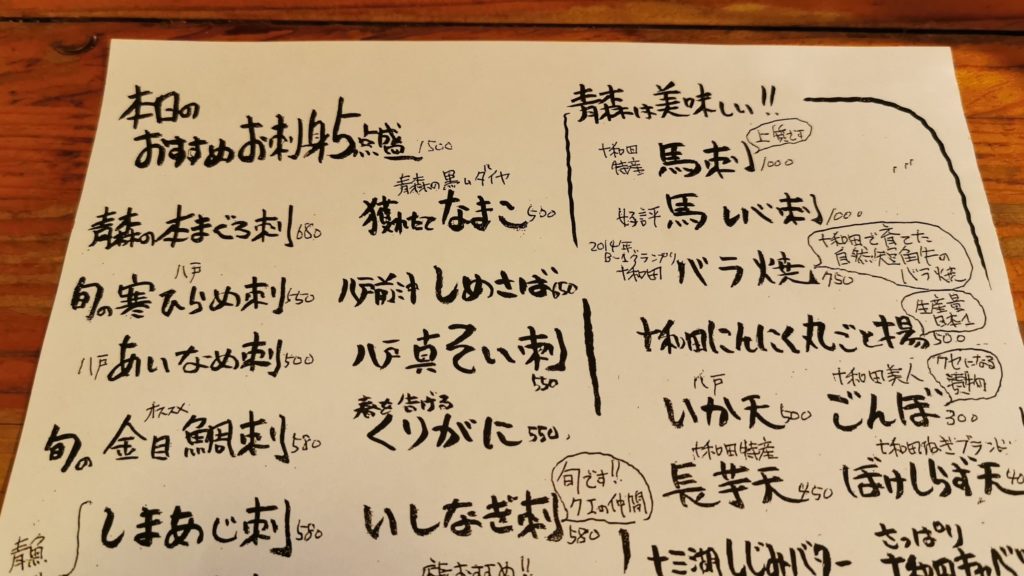 本日の
おすすめお刺身5点盛 1500
青森の本まぐろ刺 680
八戸
旬の寒ひらめ刺 550
八戸あいなめ刺 500
オススメ
旬の金目鯛刺 580
青魚
しまあじ刺 580
青森の黒いダイヤ
獲れたてなまこ 500
八戸前沖しめさば 650
八戸真そい刺
550
春を告げる
くりがに 550
いしなぎ刺 580
旬です!!
クエの仲間
青森は美味しい!!
十和田
特産
馬刺 1000
上質です
好評馬レバ刺 1000
2014年
B-1グランプリ
十和田
バラ焼 750
十和田で育てた
自然短角牛の
バラ焼
十和田にんにく丸ごと揚 500
生産量
日本1
八戸
いか天 500
十和田美人
ごんぼ 300
クセになる
漬物
十和田特産
長芋天 450
十和田ねぎブランド
ぼけしらず天
十三湖しじみバター
さっぱり
十和田キャベツ